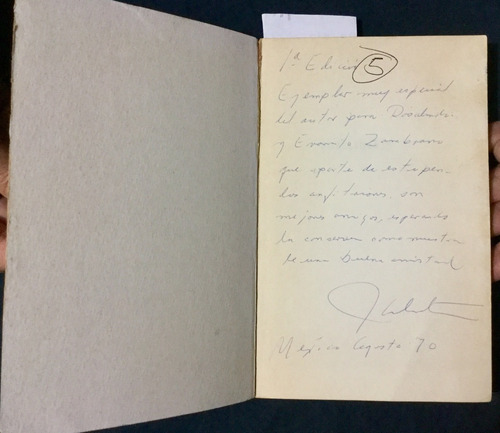 1ª Edición 5
Ejemplar muy especial
del autor para
y Zambrano
que aparte de estupen-
dos anfitriones, son
mejores amigos, esperando
la conserven como muestra
de una buena amistad
México Agosto 70